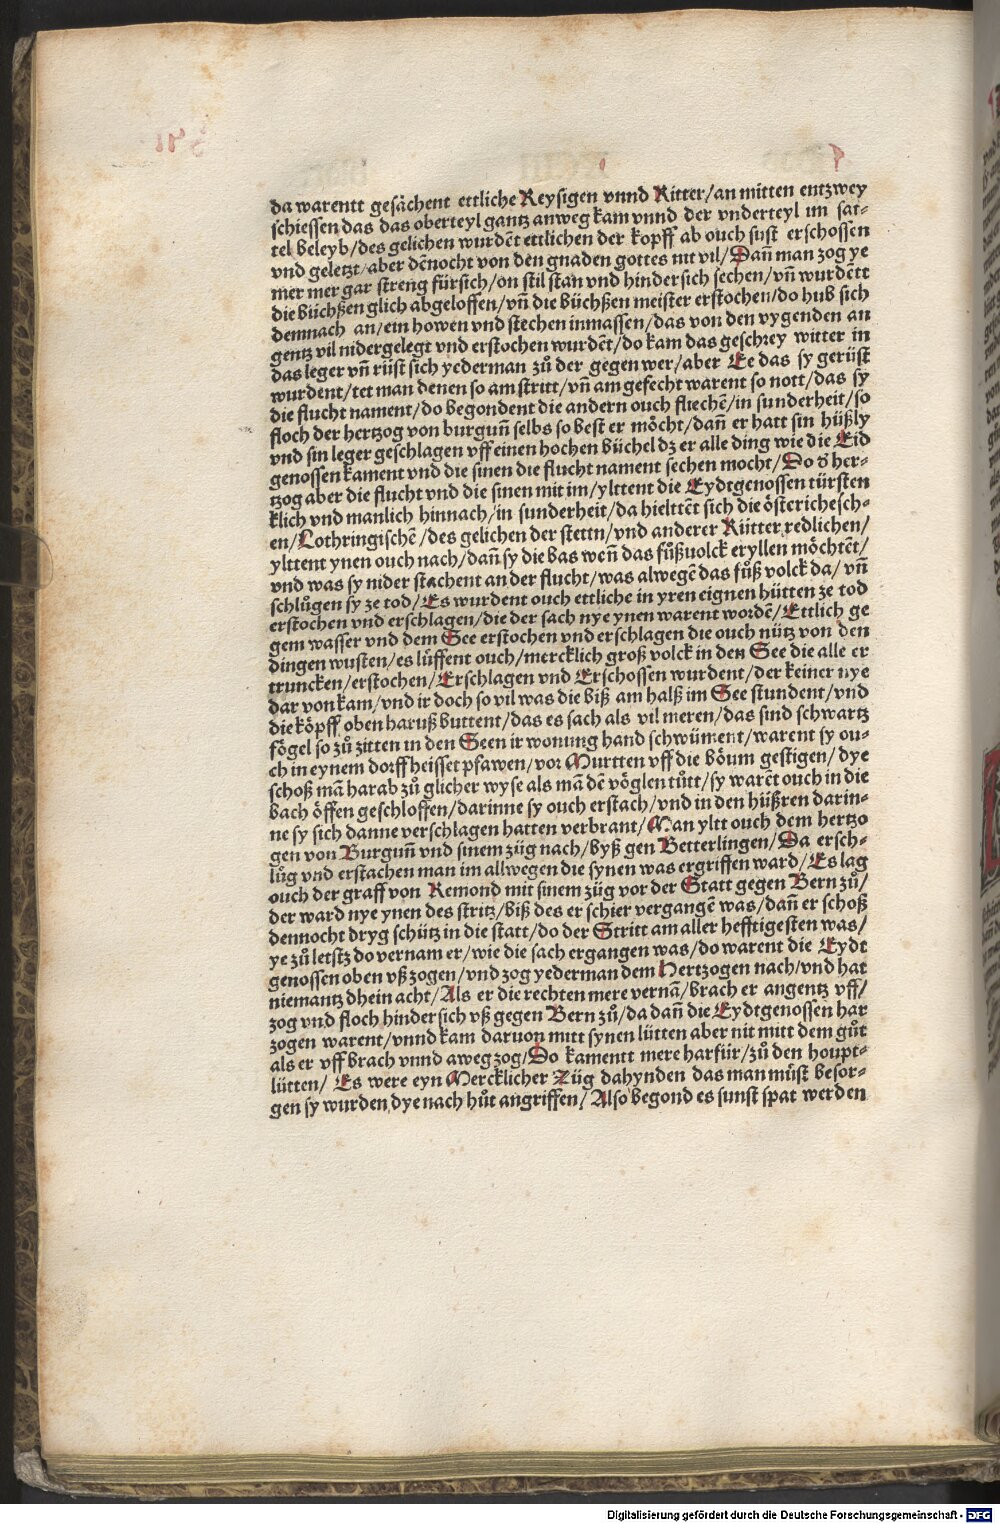 da warentt gesächent ettliche Reysigen vnnd Ritter/an mitten entzwey
schiessen das das oberteyl gantz anweg kam vnnd der vnderteyl im sat⸗
tel beleyb/des gelichen wurdẽt ettlichen der kopff ab ouch sust erschossen
vnd geletzt/aber dẽnocht von den gnaden gottes nit vil/Dañ man zog ye
mer mer gar streng fürsich/on stil stan vnd hindersich sechen/vñ wurdẽtt
die büchßen glich abgeloffen/vñ die büchßen meister erstochen/do hub sich
demnach an/ein howen vnd stechen inmassen/das von den vygenden an
gentz vil nidergelegt vnd erstochen wurdẽt/do kam das geschrey witter in
das leger vñ rüst sich yederman zů der gegen wer/aber Ee das sy gerüst
wurdent/tet man denen so am stritt/vñ am gefecht warent so nott/das sy
die flucht nament/do begondent die andern ouch fliechẽ/in sunderheit/so
floch der hertzog von burguñ selbs so best er möcht/dañ er hatt sin hüßly
vnd sin leger geschlagen vff einen hochen büchel dz er alle ding wie die Eid
genossen kament vnd die sinen die flucht nament sechen mocht/Do d̕ her⸗
tzog aber die flucht vnd die sinen mit im/ylttent die Eydtgenossen türsten
klich vnd manlich hinnach/in sunderheit/da hielttẽt sich die östericheschen⸗
en/Lothringischẽ/des gelichen der stettn/vnd anderer Rütter redlichen/
ylttent ynen ouch nach/dañ sy die bas weñ das fůßuolck eryllen möchtẽt/
vnd was sy nider stachent an der flucht/was alwegẽ das fůß volck da/vñ
schlůgen sy ze tod/Es wurdent ouch ettliche in yren eignen hütten ze tod
erstochen vnd erschlagen/die der sach nye ynen warent wordẽ/Ettlich ge
gem wasser vnd dem See erstochen vnd erschlagen die ouch nütz von den
dingen wusten/es lüffent ouch/mercklich groß volck in den See die alle er
truncken/erstochen/Erschlagen vnd Erschossen wurdent/der keiner nye
dar von kam/vnd ir doch so vil was die biß am halß im See stundent/vnd
die köpff oben haruß buttent/das es sach als vil meren/das sind schwartz
fögel so zů zitten in den Seen ir wonung hand schwüment/warent sy ou⸗
ch in eynem dorff heisset pfawen/vor Murtten vff die böum gestigen/dye
schoß mã harab zů glicher wyse als mã dẽ vöglen tůtt/sy warẽt ouch in die
bach öffen geschloffen/darinne sy ouch erstach/vnd in den hüßren darin⸗
ne sy sich danne verschlagen hatten verbrant/Man yltt ouch dem hertzo
gen von Burguñ vnd sinem züg nach/byß gen Betterlingen/Da ersch⸗
lůg vnd erstachen man im allwegen die synen was ergriffen ward/Es lag
ouch der graff von Remond mit sinem züg vor der Statt gegen Bern zů/
der ward nye ynen des stritz/biß des er schier vergangẽ was/dañ er schoß
dennocht dryg schütz in die statt/do der Stritt am aller hefftigesten was/
ye zů letstz do vernam er/wie die sach ergangen was/do warent die Eydt
genossen oben vß zogen/vnd zog yederman dem Hertzogen nach/vnd hat
niemantz dhein acht/Als er die rechten mere vernã/brach er angentz vff/
zog vnd floch hinder sich vß gegen Bern zů/da dañ die Eydtgenossen har
zogen warent/vnnd kam daruon mitt synen lütten aber nit mitt dem gůt
als er vff brach vnnd aweg zog/Do kamentt mere harfür/zů den houpt⸗
lütten/ Es were eyn Mercklicher Züg dahynden das man müst besor⸗
gen sy wurden dye nach hůt angriffen/Also begond es sunst spat werden
Digitalisierung gefördert durch die Deutsche Forschungsgemeinschaft - DFG